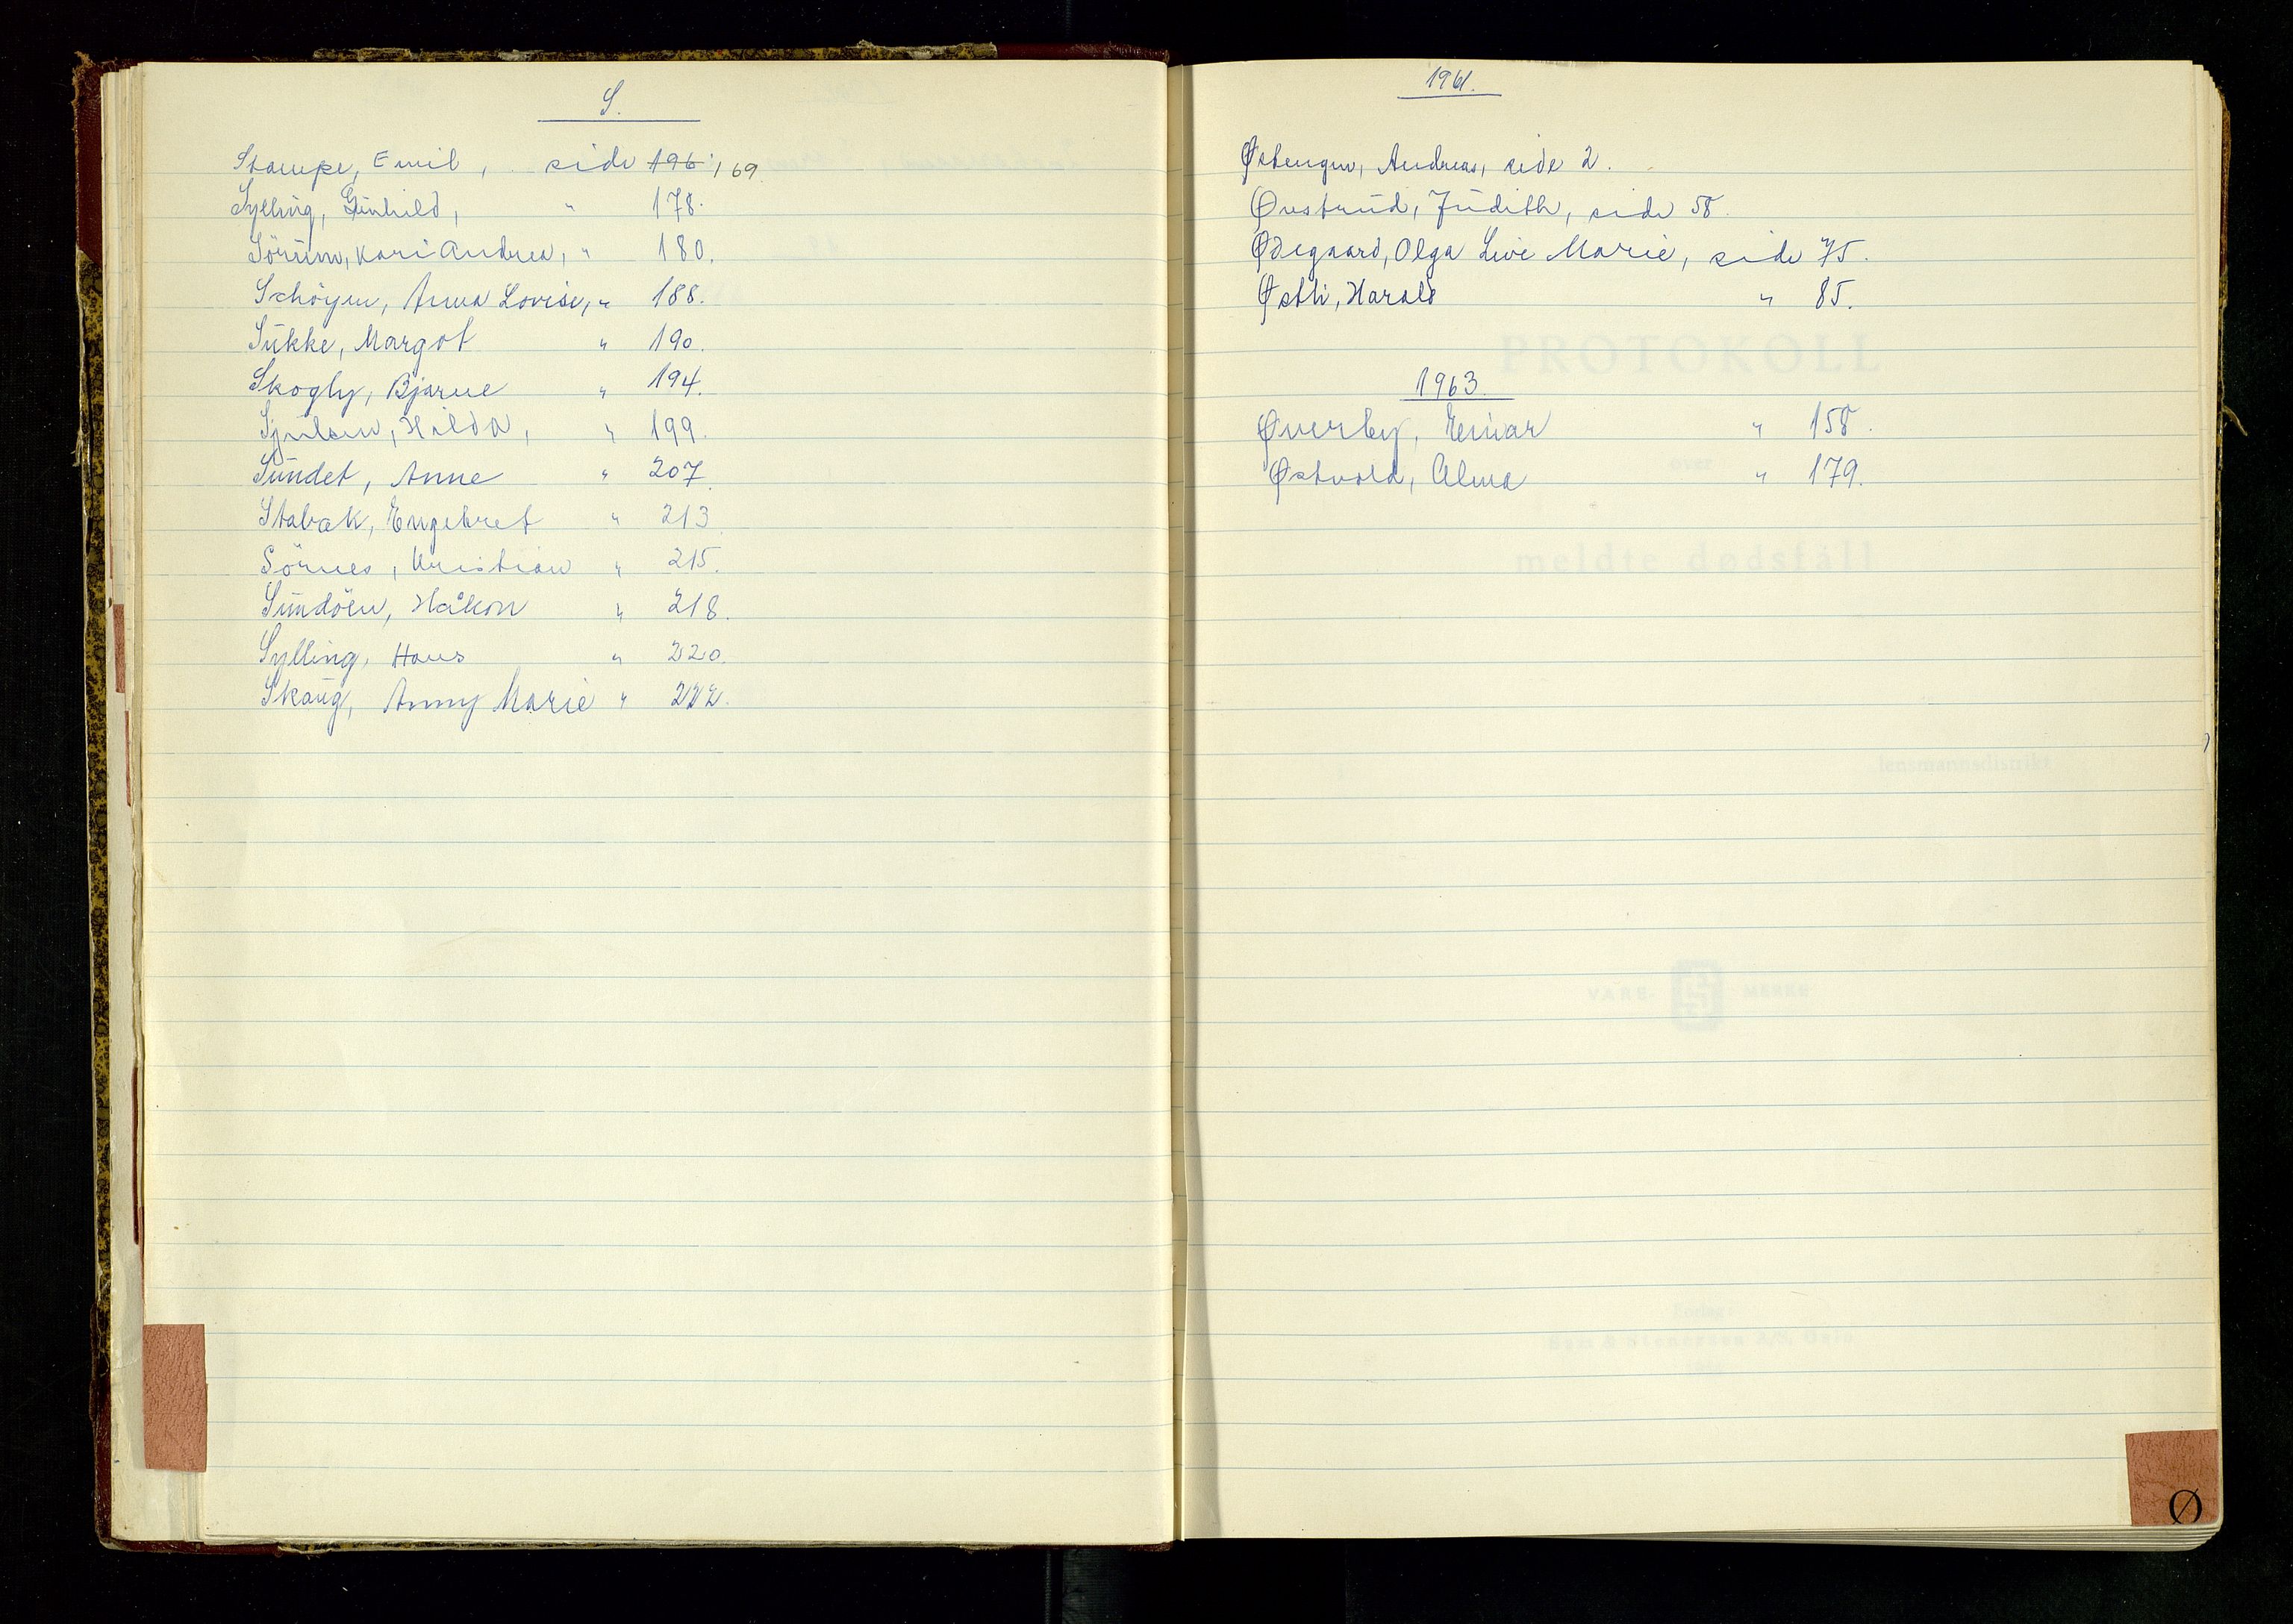 S.
Stampe, Emil, side 196. 169
Sylling, Gunhild, " 178.
Sörum, Kari Andrea, " 180.
Schöyen, Anna Lovise, " 188.
Sukke, Margot " 190.
Skogly, Bjarne " 194.
Sjulsen, Hilda, " 199.
Sundet, Anne " 207.
Stabæk, Engebret " 213
Sörnes, Kristian " 215.
Sundöen, Håkon " 218.
Sylling, Hans " 220.
Skaug, Anny Marie " 222.
1961.
Østengen, Andreas, side 2.
Øvstrud, Judith, side 58.
Ødegaard, Olga Live Marie, side 75.
Østli, Harald " 85.
1963.
Øverby, Einar " 158.
Østvold, Alma " 179.
PROTOKOLL
over
meldte dødsfall
lensmannsdistrikt
VARE MERKE
Ø